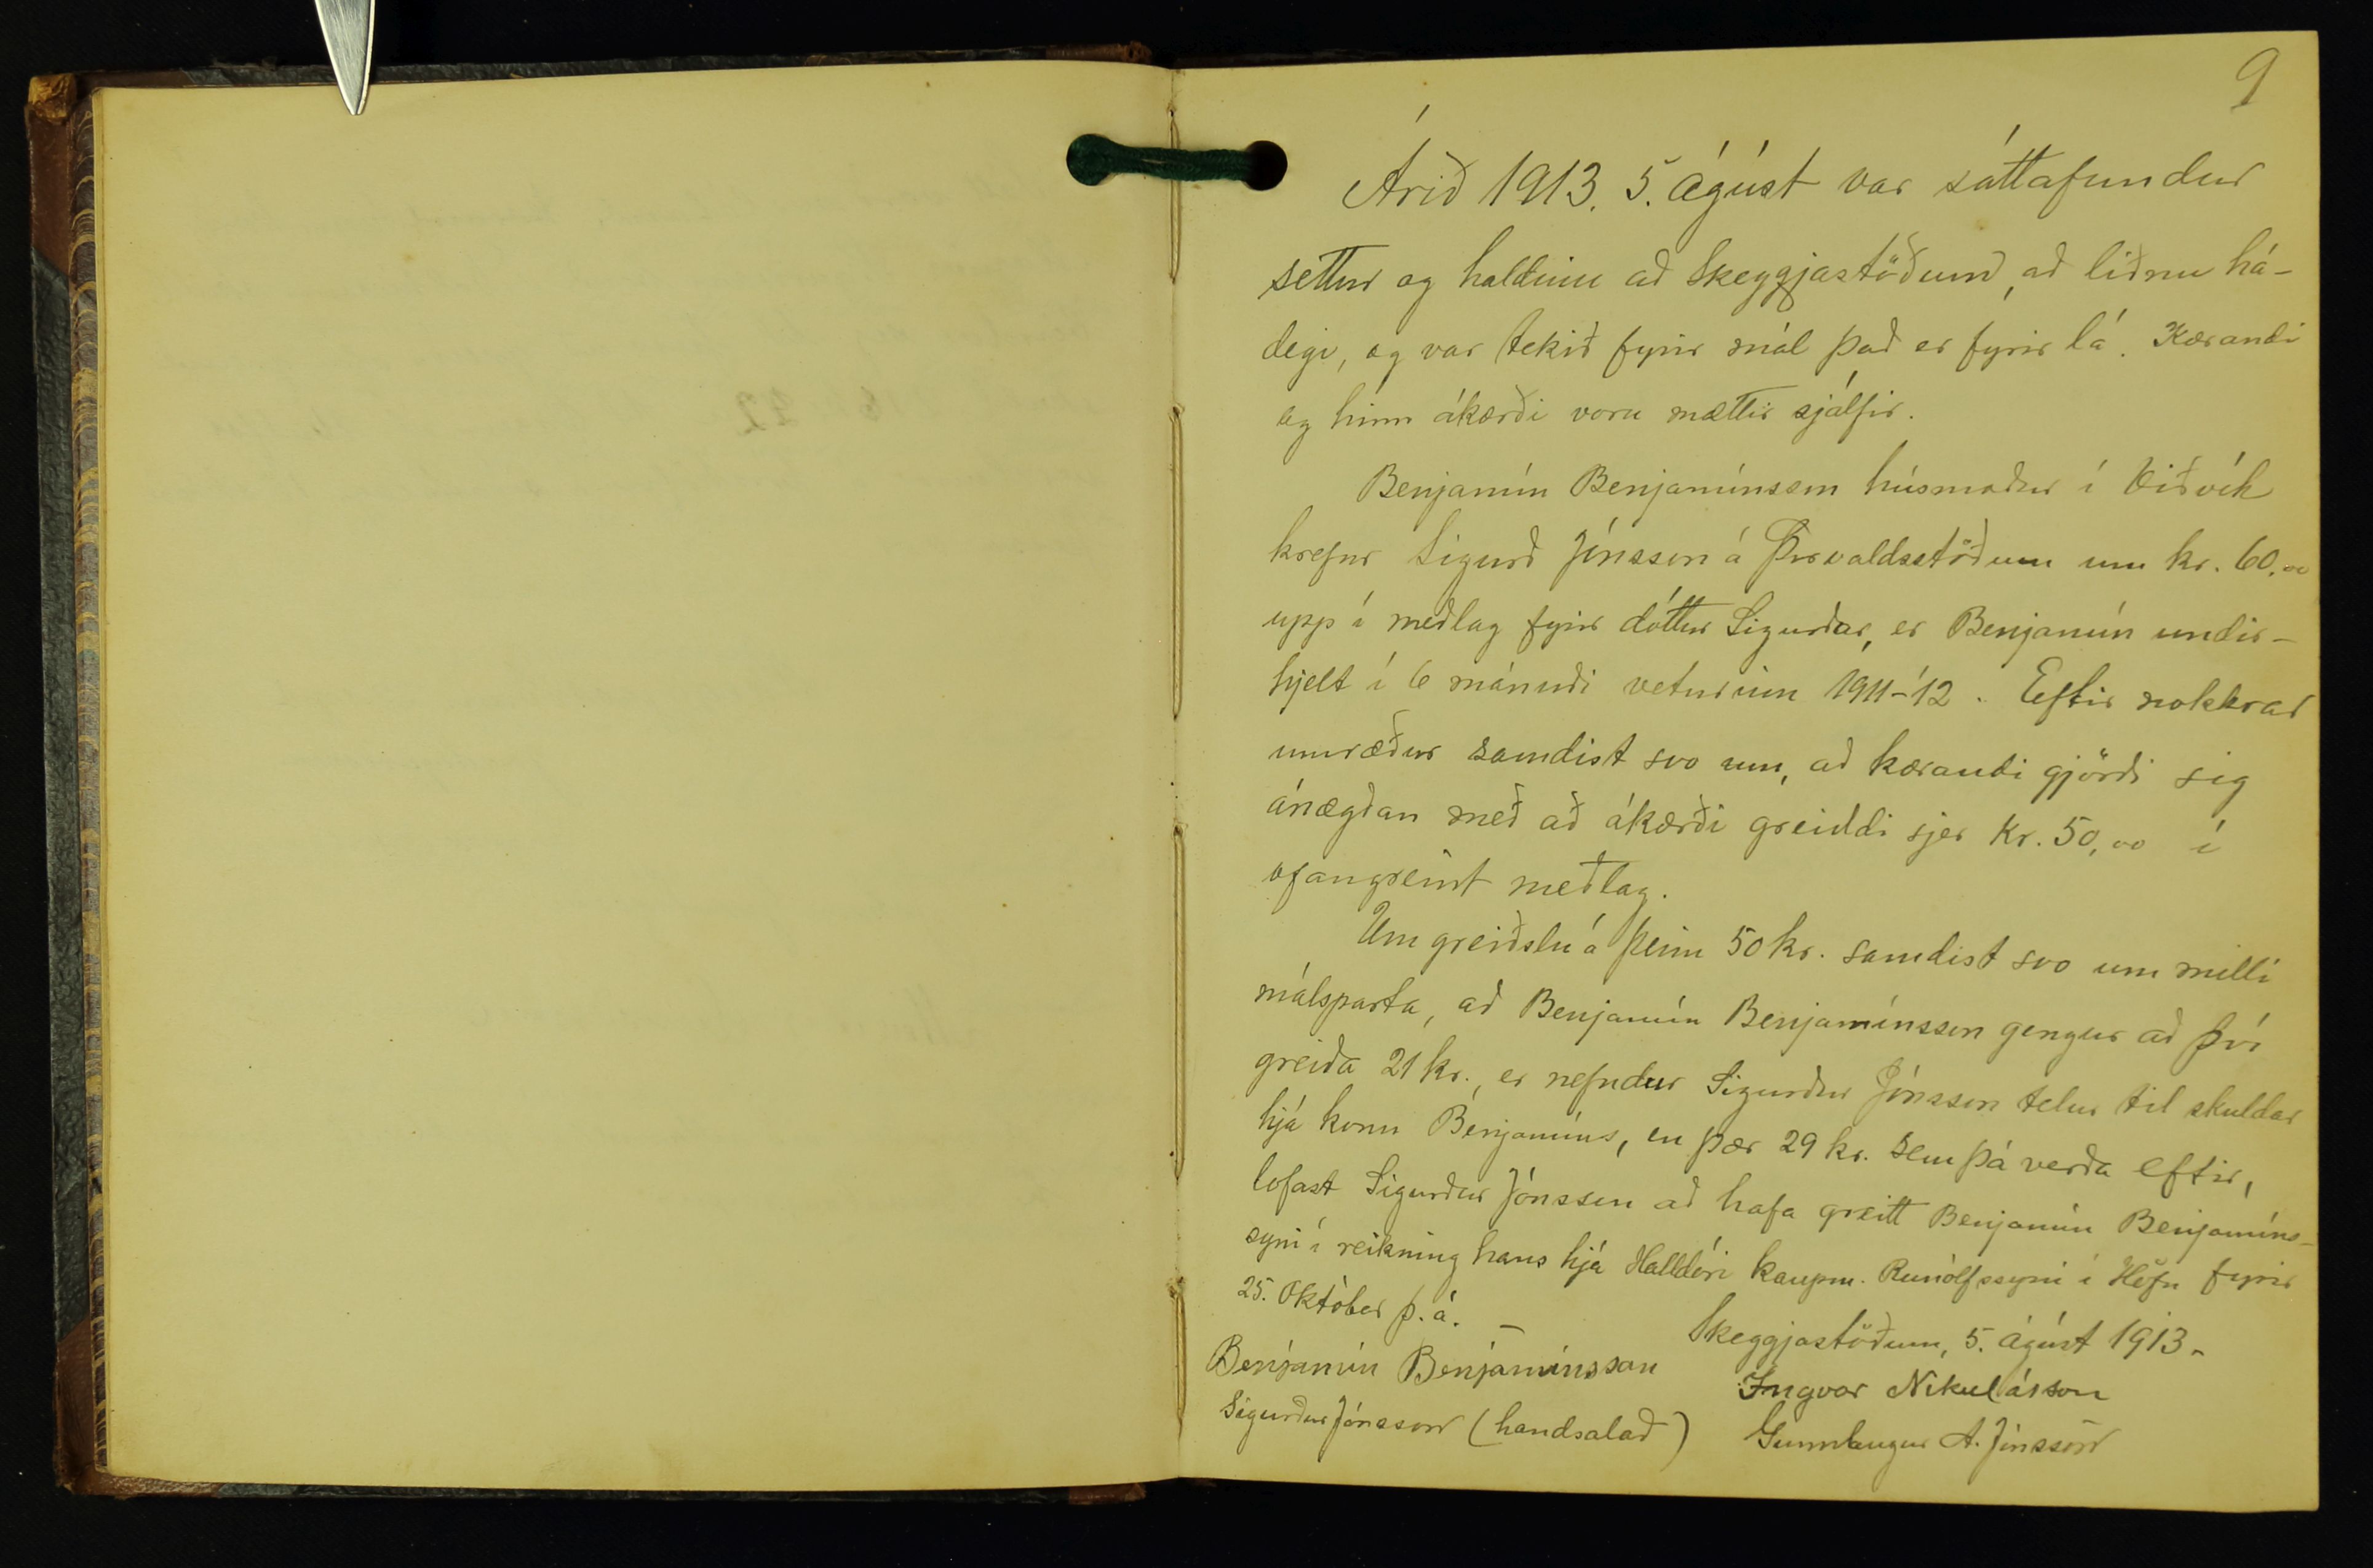 9
Árið 1913. 5. ágúst var sáttafundur
settur og haldinn að Skeggjastöðum, að liðnu há-
degi, og var tekið fyrir mál það er fyrir lá. Kærandi
og hinn ákærði voru mættir sjálfir.
Benjamín Benjamínsson húsmaður í Viðvík
krefur Sigurð Jónsson á Þorvaldsstöðum um kr. 60.00
upp í meðlag fyrir dóttur Sigurðar, er Benjamín undir-
hjelt í 6 mánuði veturinn 1911-'12. Eftir nokkrar
umræður samdist svo um, að kærandi gjörði sig
ánægðan með að ákærði greiddi sjer Kr. 50,00 í
ofangreint meðlag.
Um greiðslu á þeim 50 kr. samdist svo um milli
málsparta, að Benjamín Benjamínsson gengur að því
greiða 21 kr., er nefndur Sigurður Jónsson telur til skuldar
hjá konu Benjamíns, en þær 29 kr. sem þá verða eftir,
lofast Sigurður Jónsson að hafa greitt Benjamín Benjamíns-
syni í reikning hans hjá Halldóri kaupm. Runólfssyni í Höfn fyrir
25. Október þ.á. -
Skeggjastöðum, 5. ágúst 1913.
Benjamín Benjamínsson
Ingvar Nikulásson
Sigurður Jónsson (handsalað)
Gunnlaugur A. Jónsson